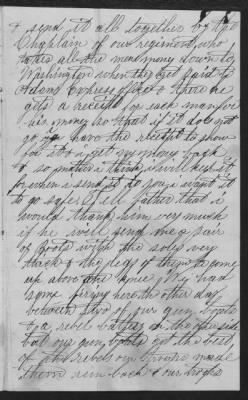 & send it all together by the
Chaplain of our regiment, who
takes all the mens money down to
Washington when they get paid to
Adams Express office & there he
gets a receipt for each man for
his money so that if it does not
go i have the receipt to show
for it & i get my money back
& so mother i think i will keep it
for when i send it to you i want it
to go safe. Tell father that i
would thank him very much
if he will send me a pair
of Boots with the soles very
thick & the legs of them to come
up above the knee. We had
some firing here the other day
between two of our gun boats
& a rebel battery on the side
but our gun boats got the best
of the rebels our made
them run back & our boats